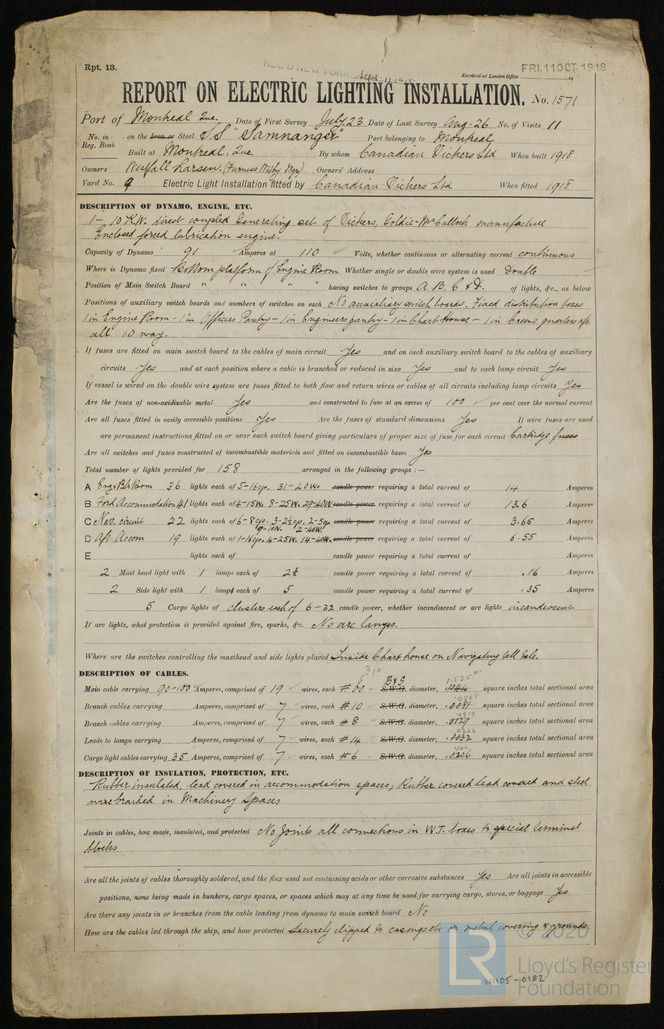 Rpt. 13.
REC'D NEW YORK Sept
Received at London Office FRI. 11 OCT. 1918
REPORT ON ELECTRIC LIGHTING INSTALLATION. No. 1571
Port of Montreal Que. Date of First Survey July 23 Date of Last Survey Aug-26 No. of Visits 11
No. in Reg. Book on the Iron or Steel S.S. "Samnanger" Port belonging to Montreal
Built at Montreal, Que By whom Canadian Vickers Ltd When built 1918
Owners Westfall Larsen (Furness Withy Mgrs) Owners' Address
Yard No. 9 Electric Light Installation fitted by Canadian Vickers Ltd When fitted 1918
DESCRIPTION OF DYNAMO, ENGINE, ETC.
1 - 10 K.W. direct coupled Generating set of Vickers, Goldie-McCulloch manufacture
Enclosed forced lubrication engine.
Capacity of Dynamo 91 Amperes at 110 Volts, whether continuous or alternating current continuous
Where is Dynamo fixed Bottom platform of Engine Room Whether single or double wire system is used Double
Position of Main Switch Board " " " " having switches to groups A. B. C & D. of lights, &c., as below
Positions of auxiliary switch boards and numbers of switches on each No anauxiliary switch boards. Fixed distribution boxes
1 in Engine Room - 1 in Officers Pantry - 1 in Engineers pantry - 1 in Chart House - 1 in Crews quarters aft
all 10 way.
If fuses are fitted on main switch board to the cables of main circuit Yes and on each auxiliary switch board to the cables of auxiliary
circuits Yes and at each position where a cable is branched or reduced in size Yes and to each lamp circuit Yes
If vessel is wired on the double wire system are fuses fitted to both flow and return wires or cables of all circuits including lamp circuits Yes
Are the fuses of non-oxidizable metal Yes and constructed to fuse at an excess of 100 per cent over the normal current
Are all fuses fitted in easily accessible positions Yes Are the fuses of standard dimensions Yes If wire fuses are used
are permanent instructions fitted on or near each switch board giving particulars of proper size of fuse for each circuit Cartridge fuses
Are all switches and fuses constructed of incombustible materials and fitted on incombustible bases Yes
Total number of lights provided for 158 arranged in the following groups :—
A Eng & Blr Room 36 lights each of 5-16cp. 31-40W. candle power requiring a total current of 14 Amperes
B Ford Accommodation 41 lights each of 4-15W. 8-25W. 29-40W candle power requiring a total current of 13.6 Amperes
C Nav. circuit 22 lights each of 6-8cp. 3-2½cp. 2-5cp candle power requiring a total current of 3.65 Amperes
9-10W. 2-40W.
D Aft Accom 19 lights each of 1-16cp. 4-25W. 14-40W. candle power requiring a total current of 6.55 Amperes
E lights each of candle power requiring a total current of Amperes
2 Mast head light with 1 lamps each of 2½ candle power requiring a total current of .16 Amperes
2 Side light with 1 lamps each of 5 candle power requiring a total current of .35 Amperes
5 Cargo lights of clusters each of 6-32 candle power, whether incandescent or arc lights incandescent
If arc lights, what protection is provided against fire, sparks, &c. No arc lamps.
Where are the switches controlling the masthead and side lights placed Inside Chart house on Navigating Tell tale.
DESCRIPTION OF CABLES.
Main cable carrying 90-100 Amperes, comprised of 19 wires, each #00 B & S S.W.G. diameter, square inches total sectional area
Branch cables carrying Amperes, comprised of 7 wires, each #10 S.W.G. diameter, .0081 square inches total sectional area
Branch cables carrying Amperes, comprised of 7 wires, each #8 S.W.G. diameter, .0129 square inches total sectional area
Leads to lamps carrying Amperes, comprised of 7 wires, each #14 S.W.G. diameter, .0032 square inches total sectional area
Cargo light cables carrying 35 Amperes, comprised of 7 wires, each #6 S.W.G. diameter, .0206 square inches total sectional area
DESCRIPTION OF INSULATION, PROTECTION, ETC.
Rubber insulated, lead covered in accommodation spaces, Rubber covered lead covered and steel
wire braided in Machinery Spaces
Joints in cables, how made, insulated, and protected No Joints all connections in W.T. boxes to special terminal
blocks
Are all the joints of cables thoroughly soldered, and the flux used not containing acids or other corrosive substances Yes Are all joints in accessible
positions, none being made in bunkers, cargo spaces, or spaces which may at any time be used for carrying cargo, stores, or baggage Yes
Are there any joints in or branches from the cable leading from dynamo to main switch board No
How are the cables led through the ship, and how protected Securely clipped to casings &c or metal covering & grounds
© 2020
LR
Lloyd's Register
Foundation
W1105-0182